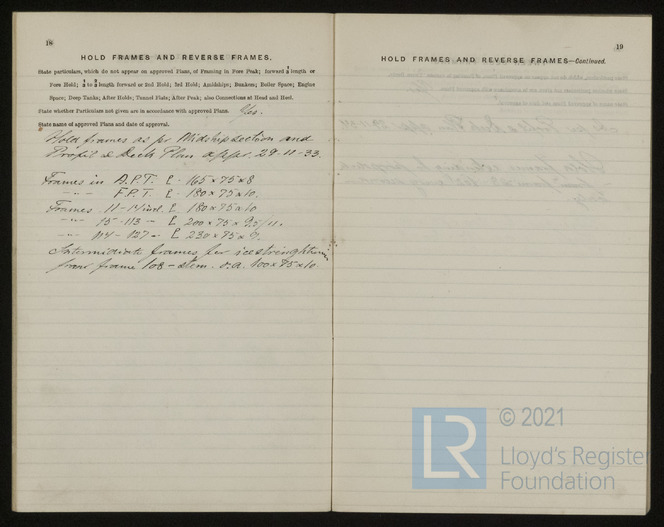 18
HOLD FRAMES AND REVERSE FRAMES.
State particulars, which do not appear on approved Plans, of Framing in Fore Peak; forward ⅕ length or
Fore Hold; length forward or 2nd Hold; 3rd Hold; Amidships; Bunkers; Boiler Space; Engine
Space; Deep Tanks; After Holds; Tunnel Flats; After Peak; also Connections at Head and Heel.
State whether Particulars not given are in accordance with approved Plans. Yes.
State name of approved Plans and date of approval.
Hold frames as pr Midship section and
Profil & Deck Plan appr. 29-11-33.
Frames in A.P.T. [ - 165 x 75 x 8
-"- -"- F.P.T. [ - 180 x 75 x 10.
Frames 11-14 incl. [ 180 x 75 x 10
-"- 15-113 - [ 200 x 75 x 9.5/11.
-"- 114-127 - [ 230 x 75 x 9.
Intermidiate frames for icestrenghtning
from frame 108 - stem. o.a. 100 x 75 x 10.
19
HOLD FRAMES AND REVERSE FRAMES—Continued.
LR
© 2021
Lloyd's Register
Foundation